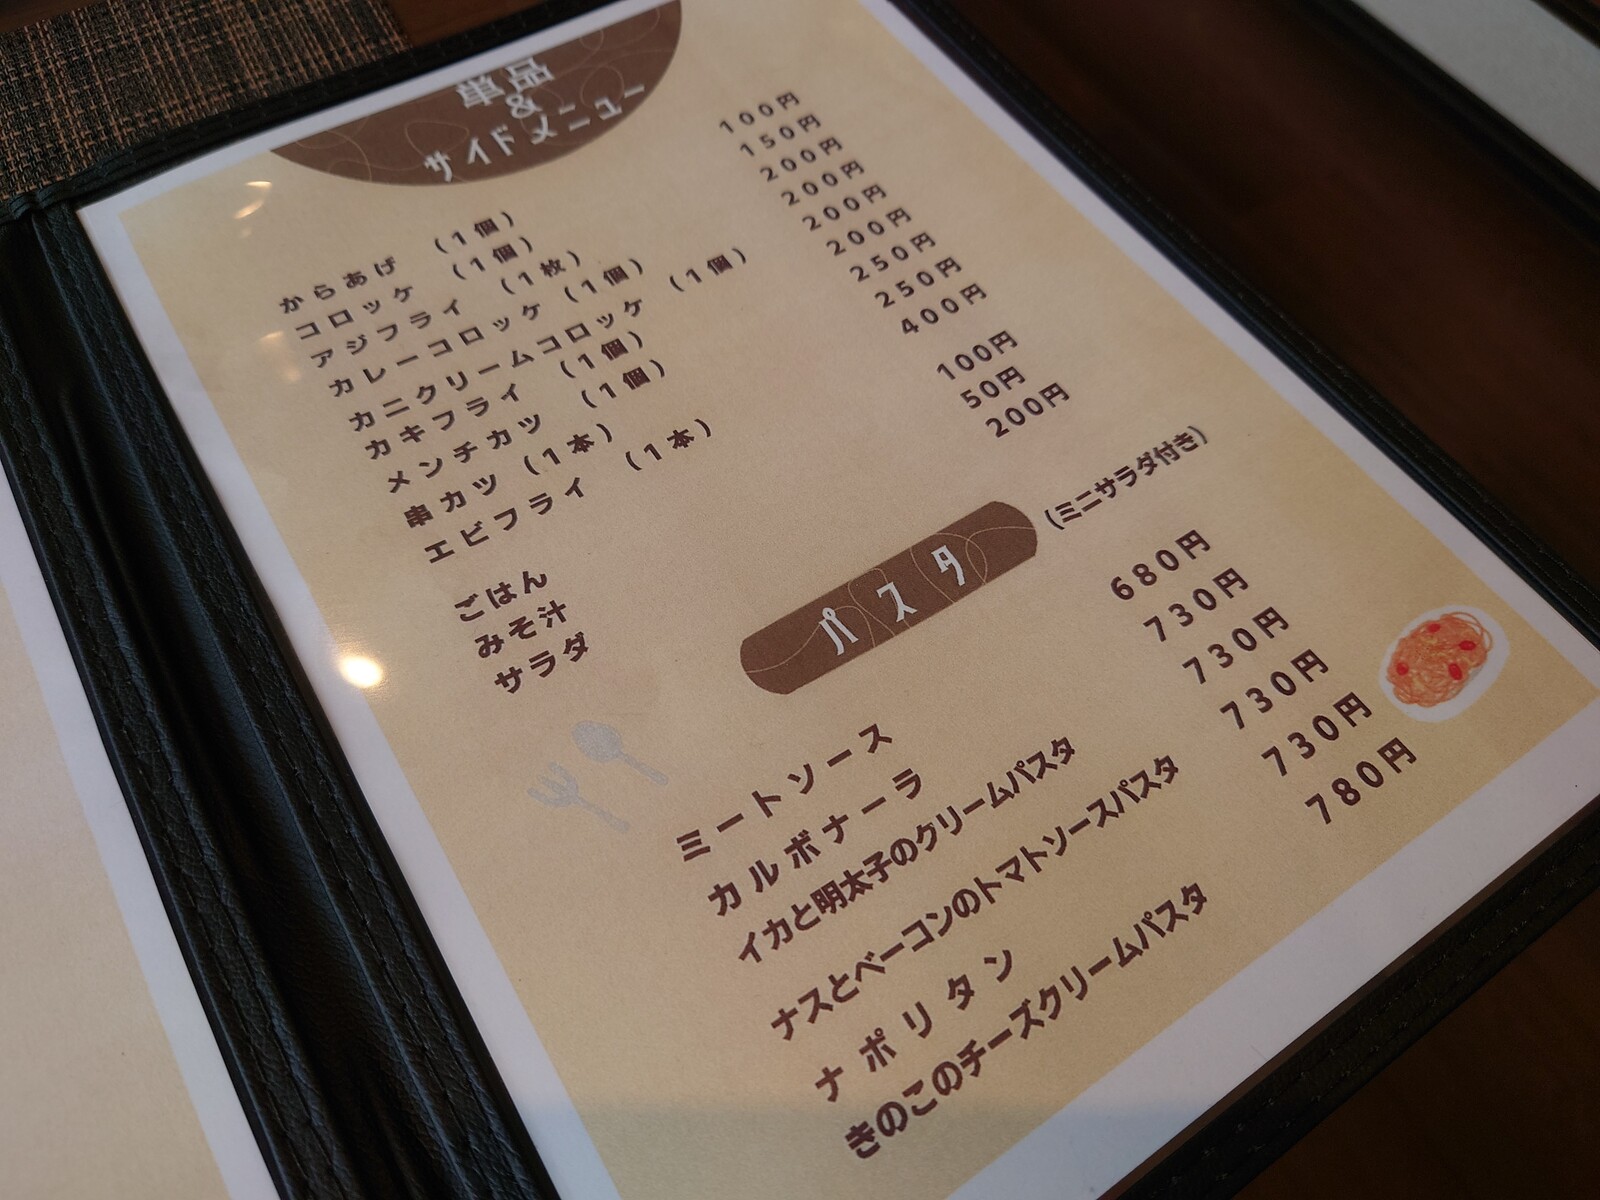 単品
&
サイドメニュー
からあげ （１個） 100円
コロッケ （１個） 150円
アジフライ （１枚） 200円
カレーコロッケ （１個） 200円
カニクリームコロッケ （１個） 200円
カキフライ （１個） 200円
メンチカツ （１個） 250円
串カツ （１本） 250円
エビフライ （１本） 400円
ごはん 100円
みそ汁 50円
サラダ 200円
パスタ （ミニサラダ付き）
ミートソース 680円
カルボナーラ 730円
イカと明太子のクリームパスタ 730円
ナスとベーコンのトマトソースパスタ 730円
ナポリタン 730円
きのこのチーズクリームパスタ 780円